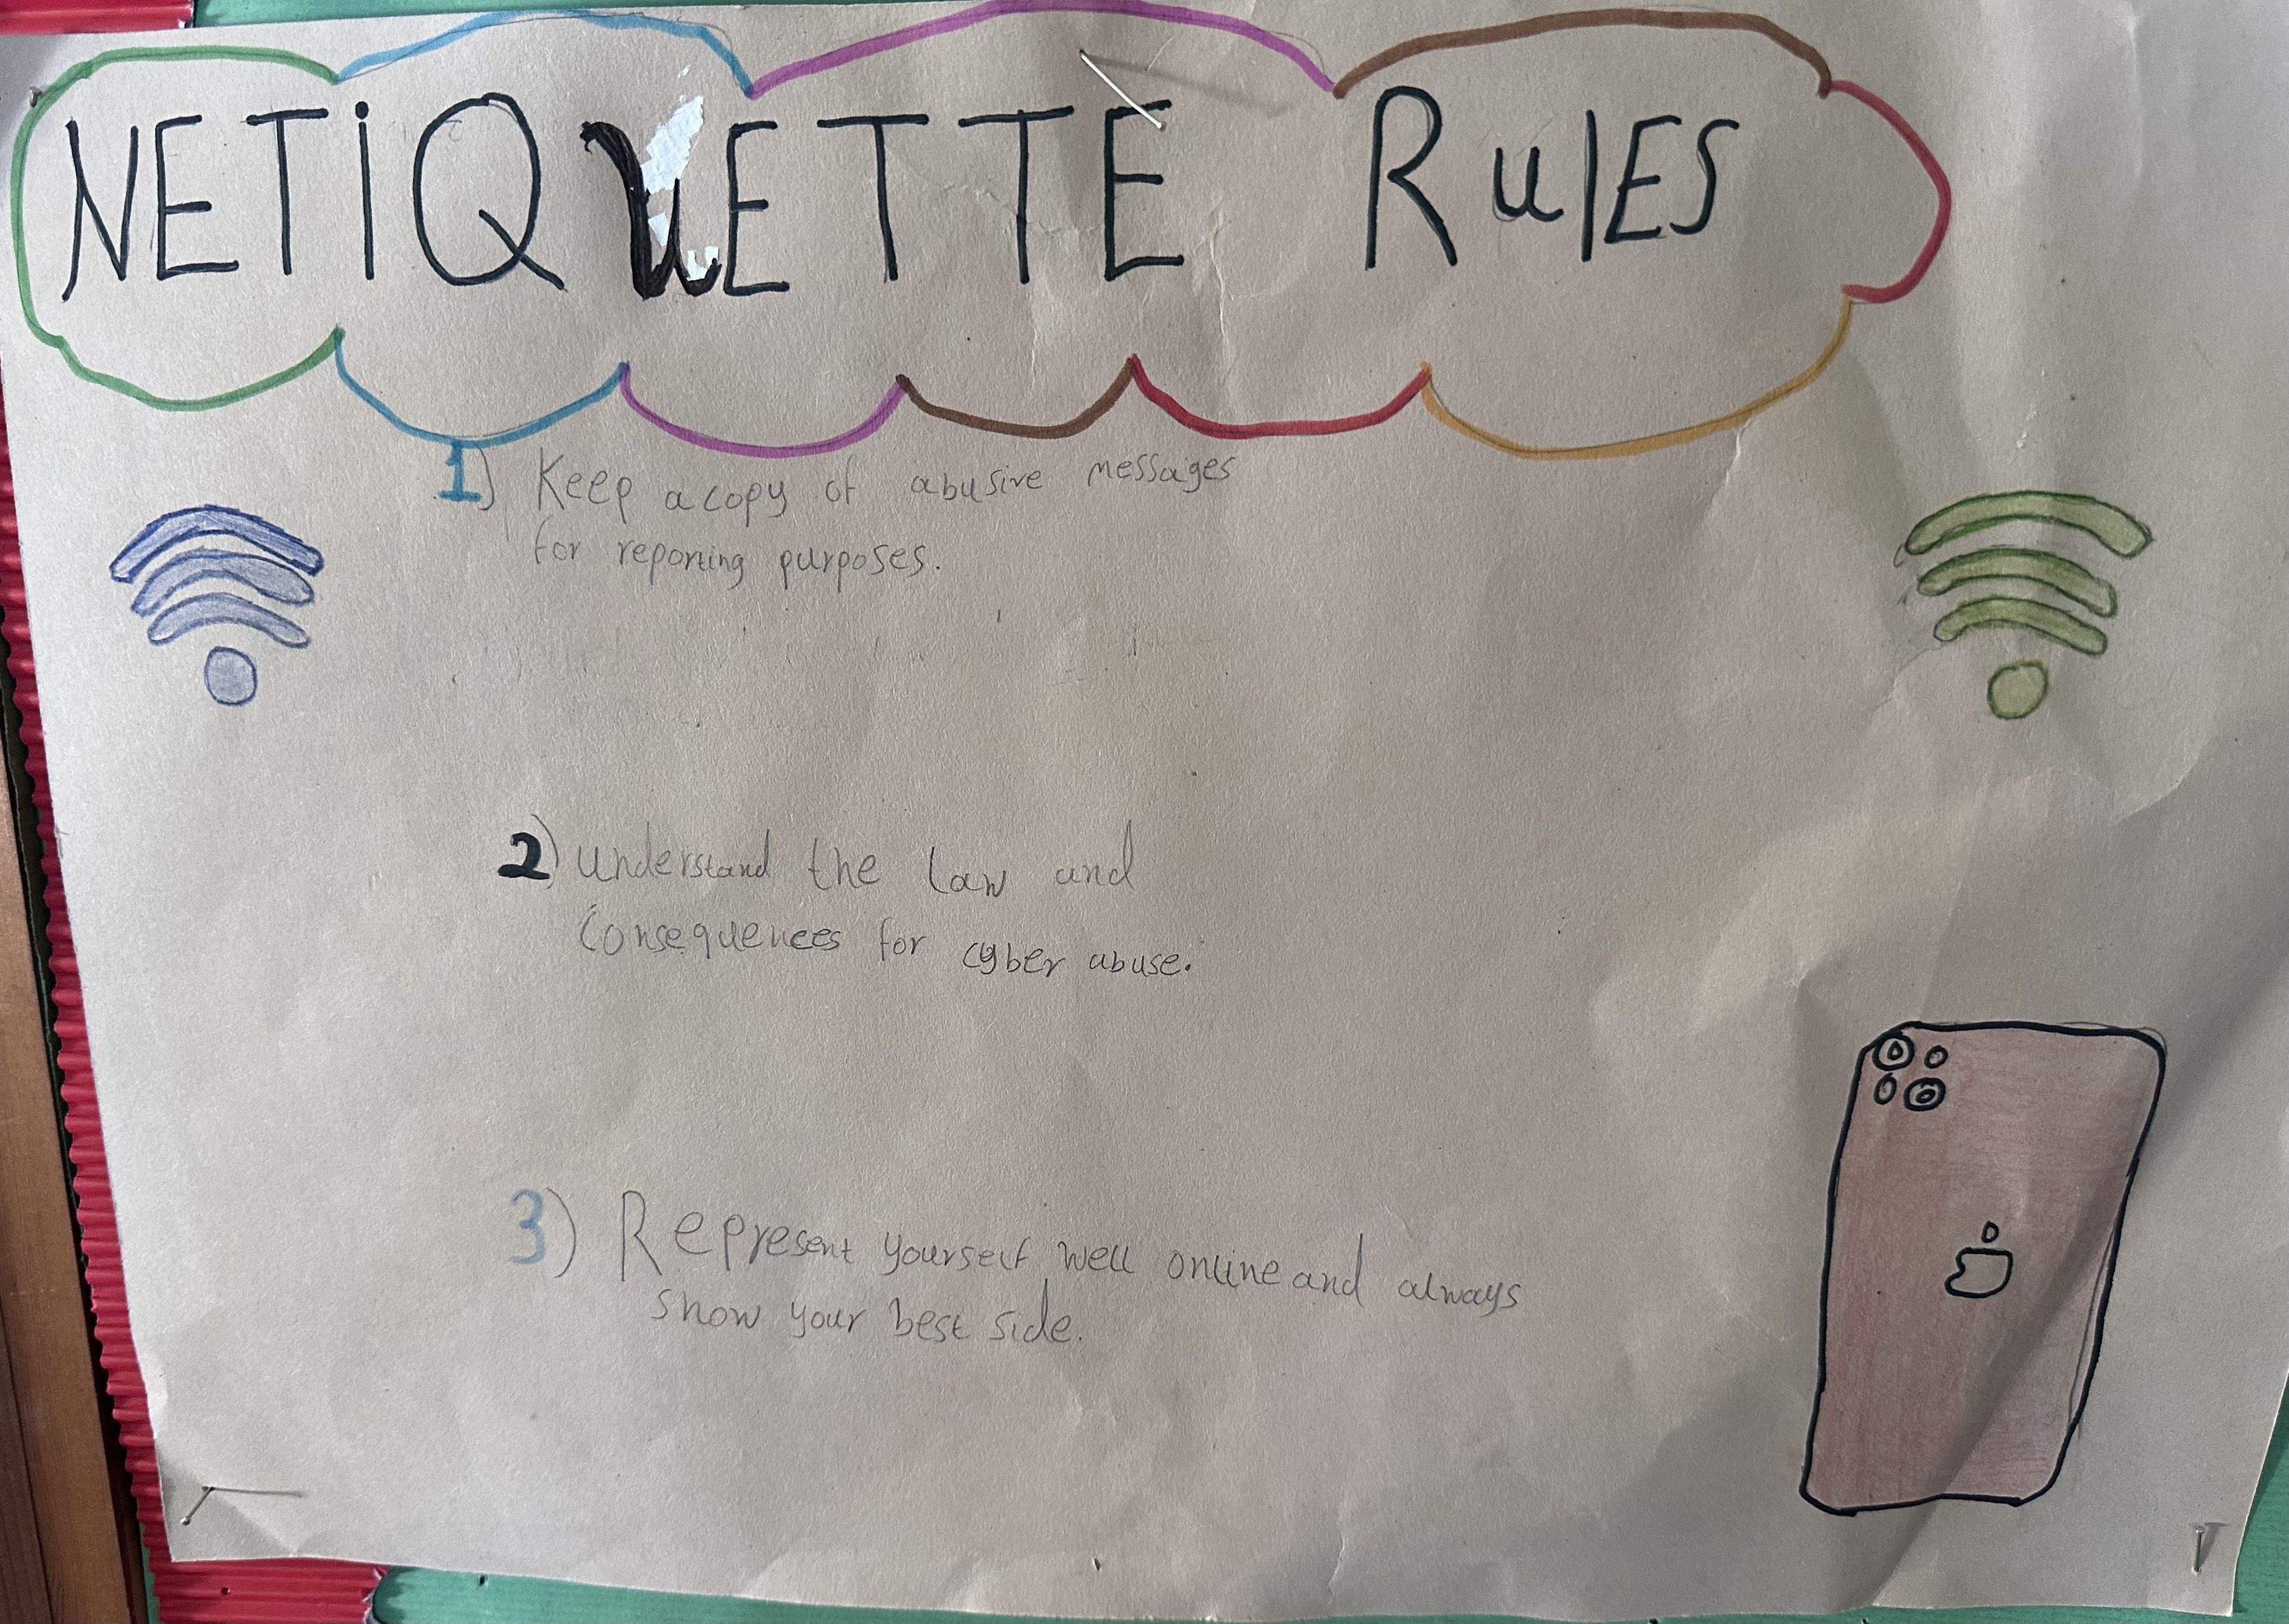 NETiQuETTE RulES
1) Keep a copy of abusive messages
for reporting purposes.
2) understand the law and
Consequences for cyber abuse.
3) Represent yourself well online and always
show your best side.